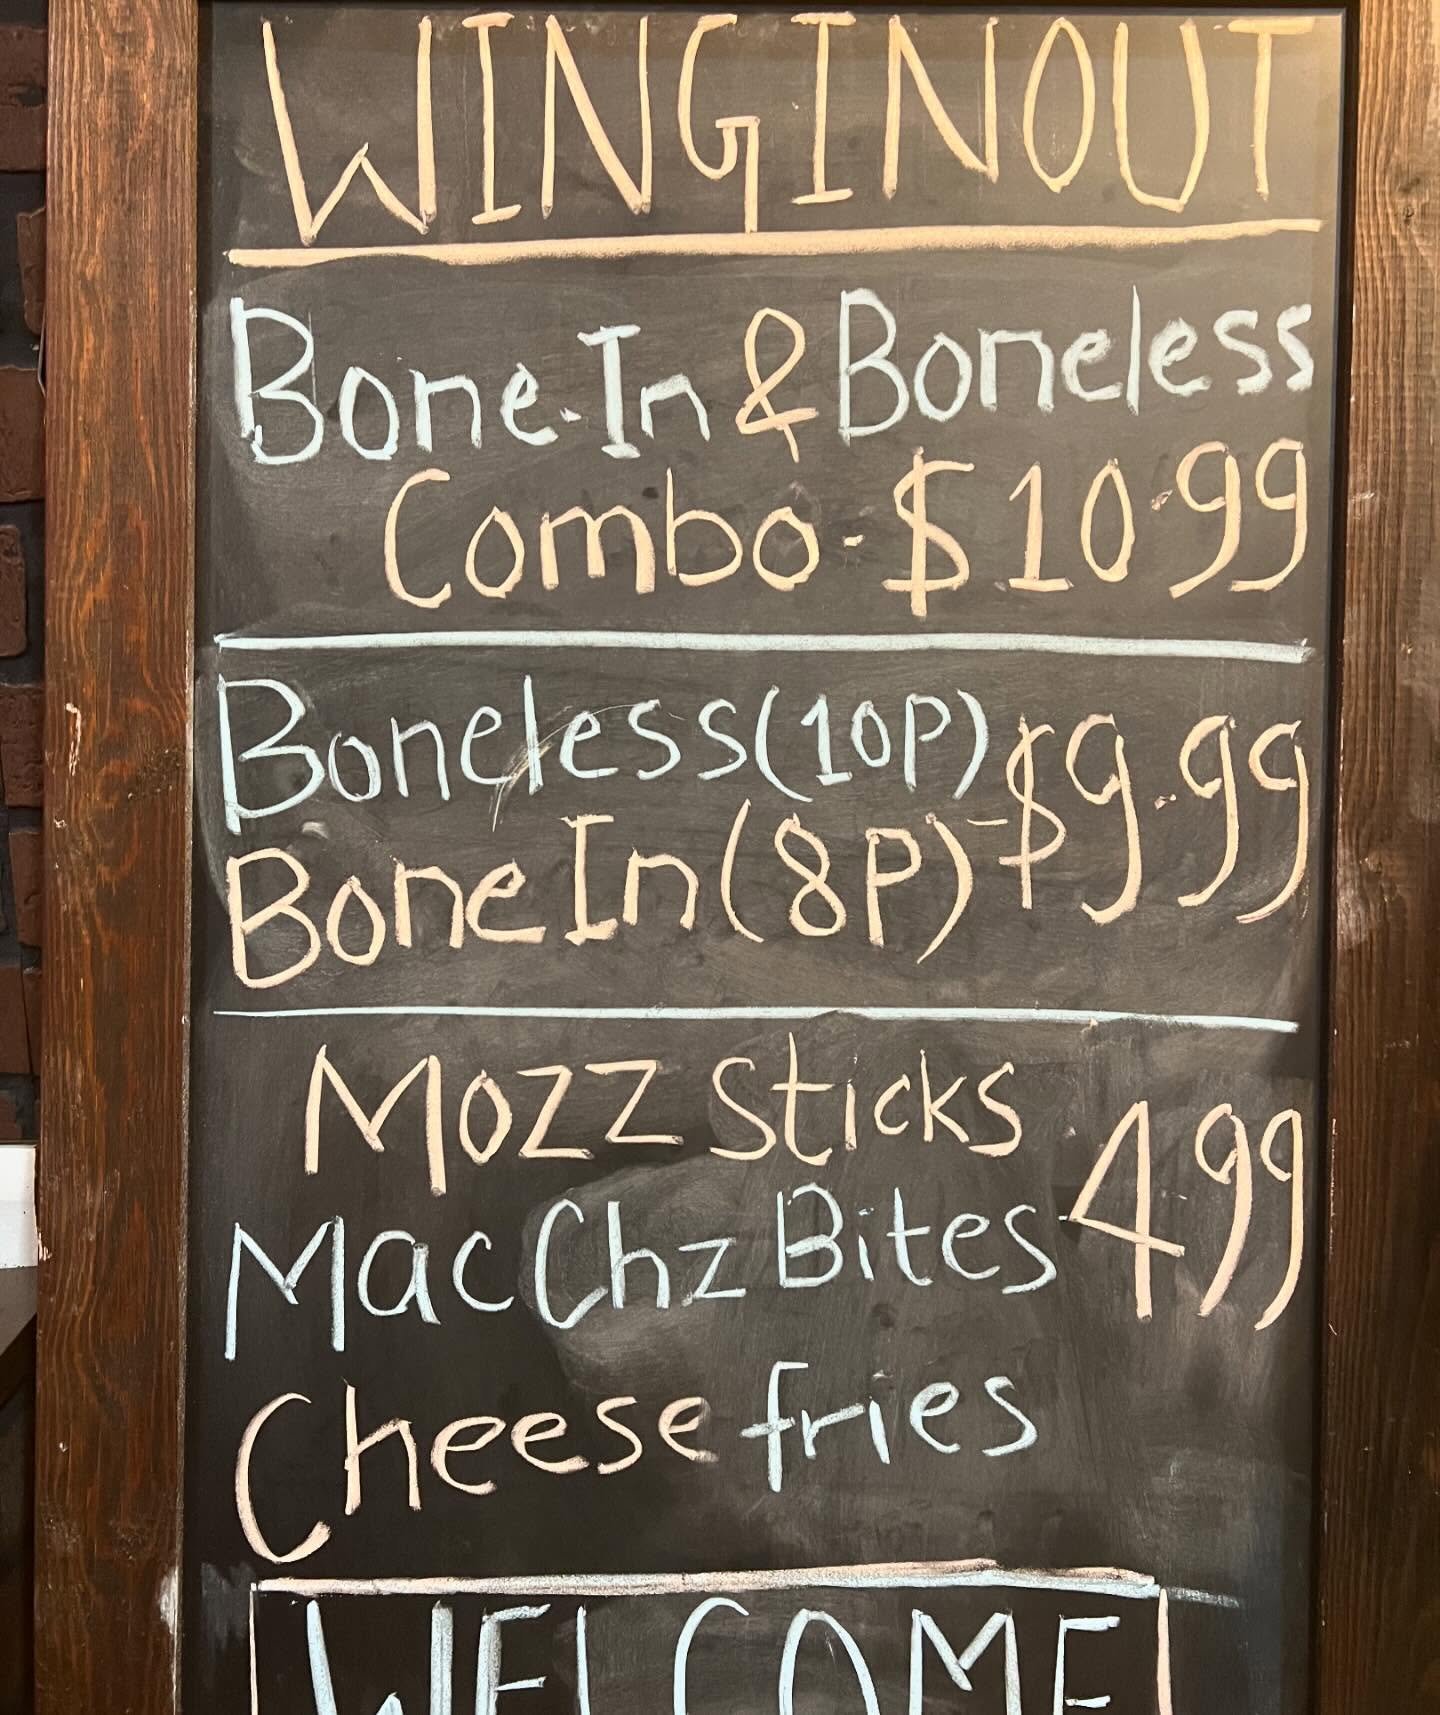 WINGINOUT
Bone-In & Boneless
Combo - $10.99
Boneless (10P)
Bone In (8P) - $9.99
Mozz sticks
Mac Chz Bites - 499
Cheese fries
WELCOME